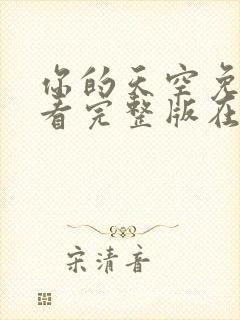 你的天空免
看完整版在
宋清音